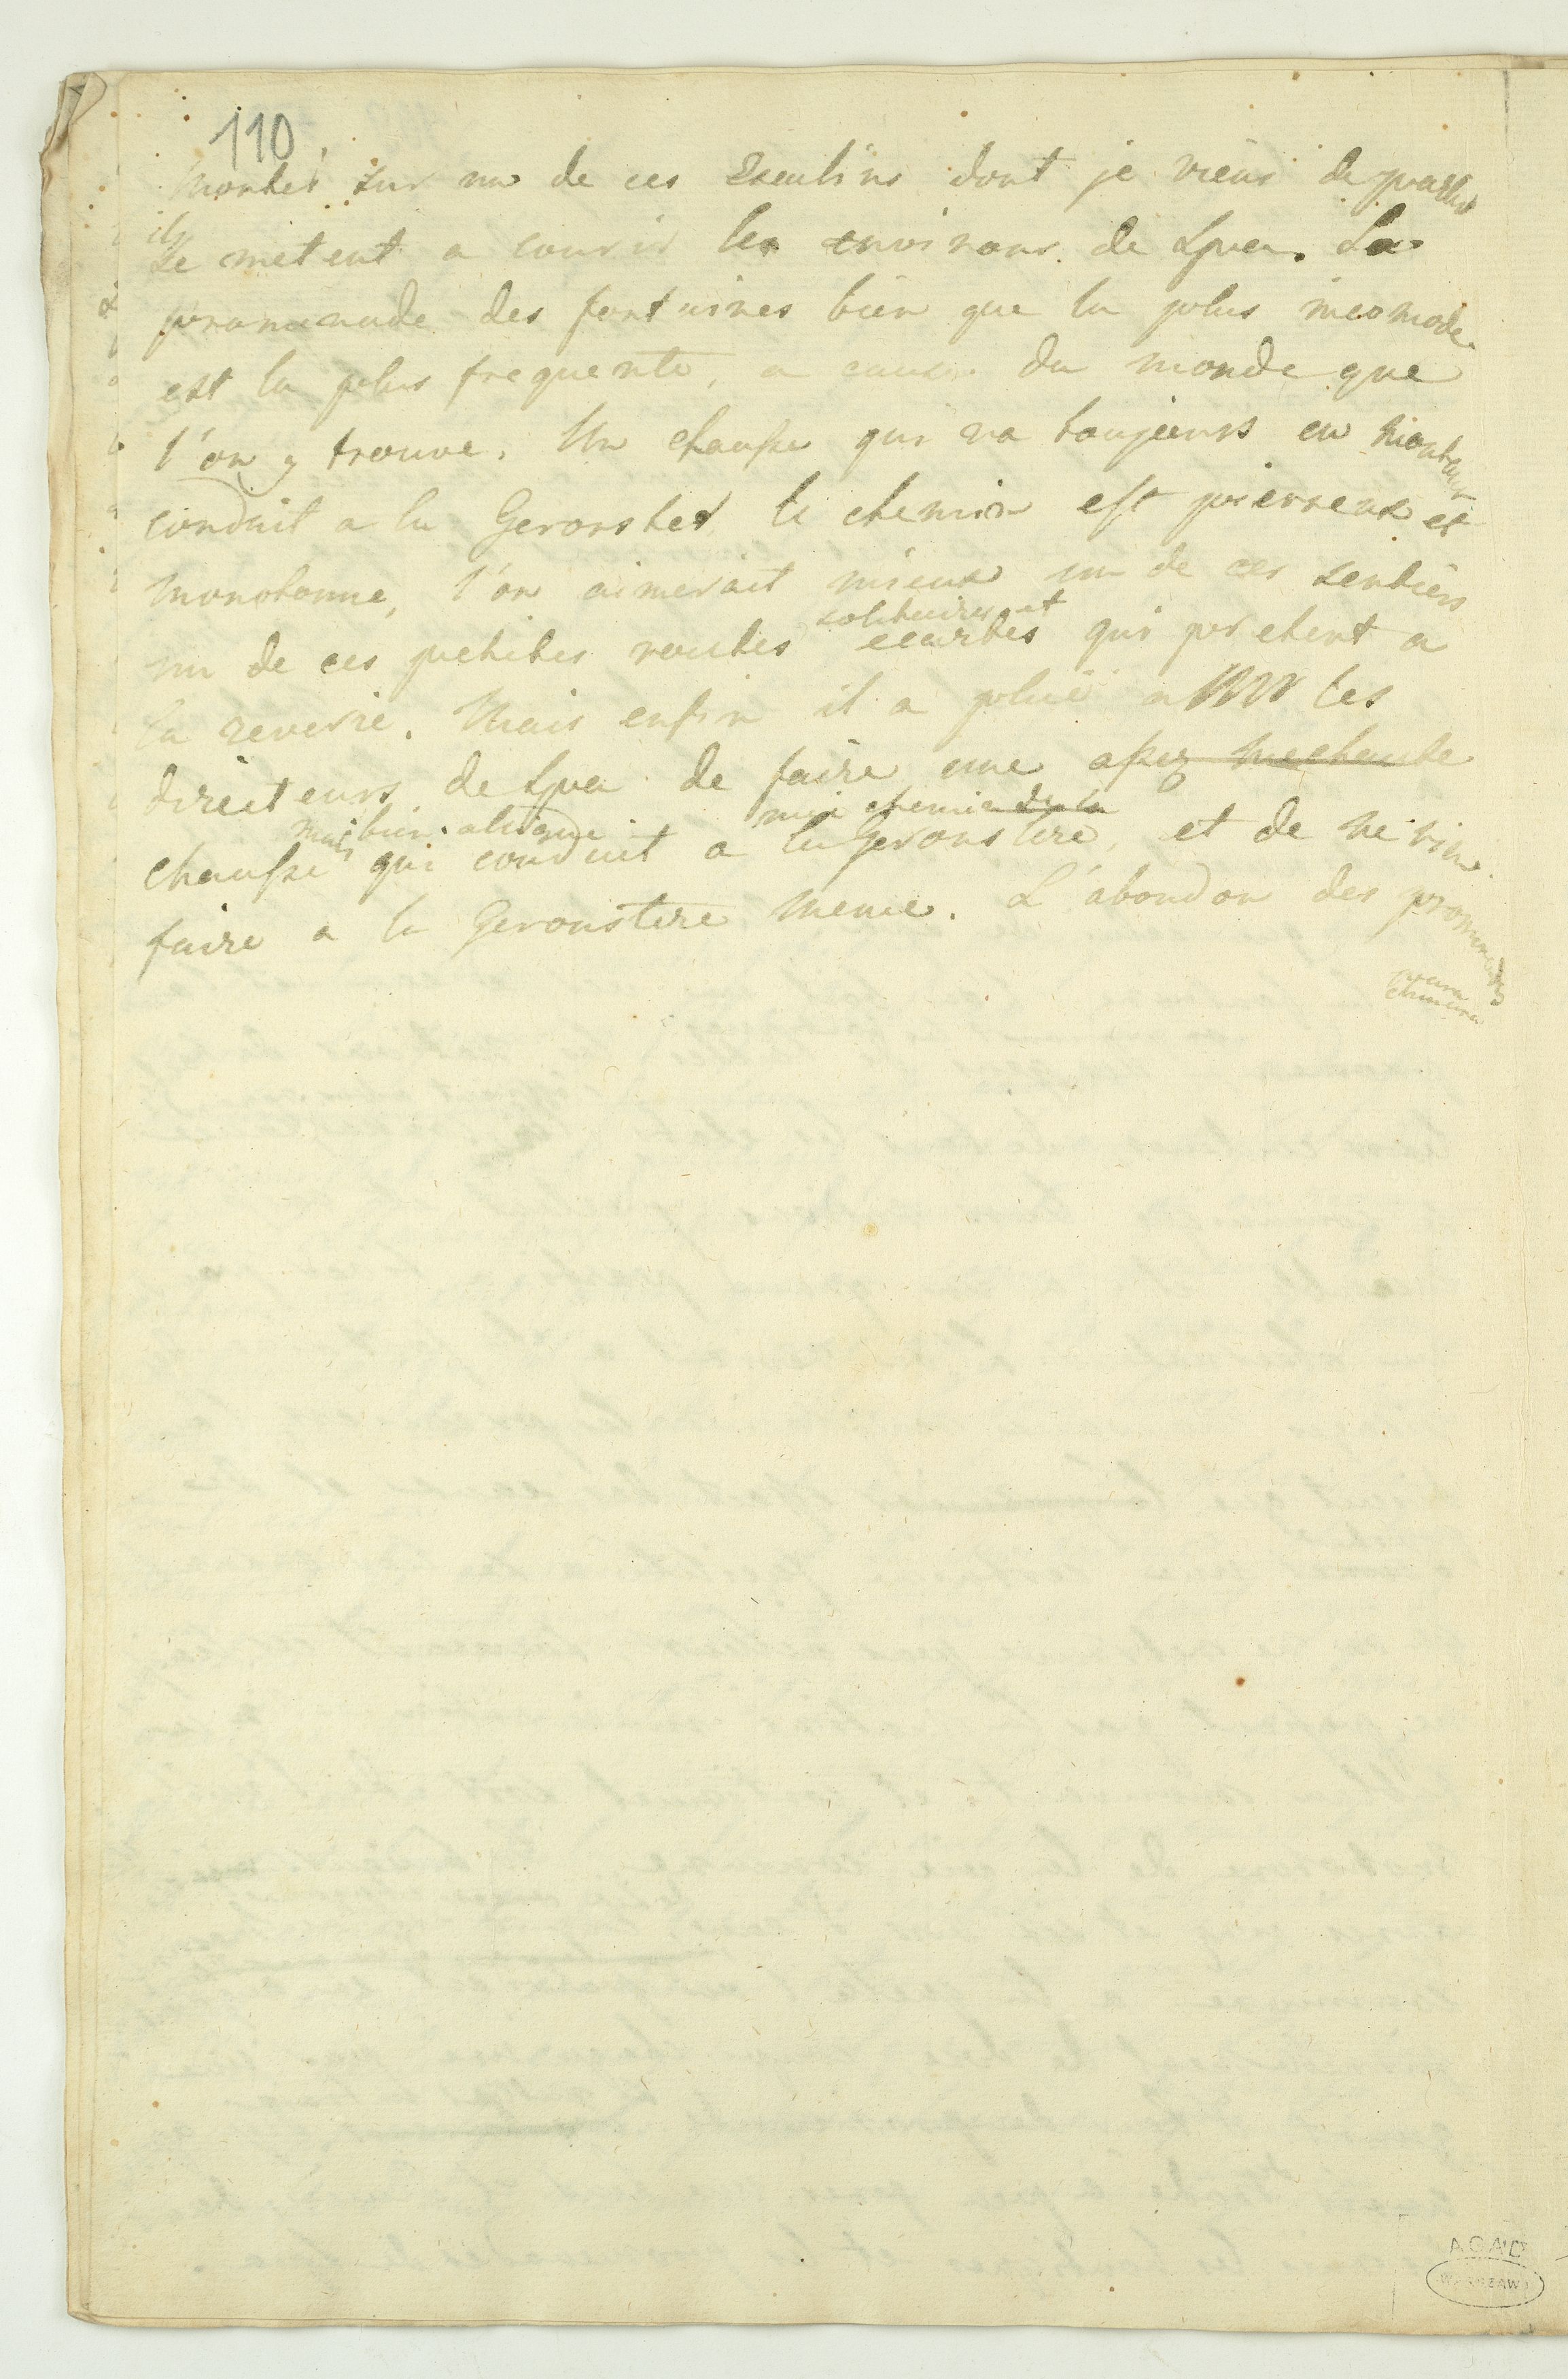 110
Montes sur un de ces Esculins dont je viens de parler
ils
se metent a courir les environs de Spa. La
promenade des fontaines bien que la plus incomode
est la plus frequente, a cause du monde que
l'on y trouve. Un chaussé qui va toujours en montant
conduit a la Geronster le chemin est pierreux et
monotonne, l'on aimerait mieux un de ces sentiers
solitaires et
un de ces petites routes ecartes qui portent a
la reverie. Mais enfin il a plue a MM les
directeurs de Spa de faire une assez mechante
mais bien aligne mi chemin de la
chaussé qui conduit a la Geronstere, et de ne rien
faire a la Geronstere meme. L'abondon des promenades
AGAD
WARSZAWA